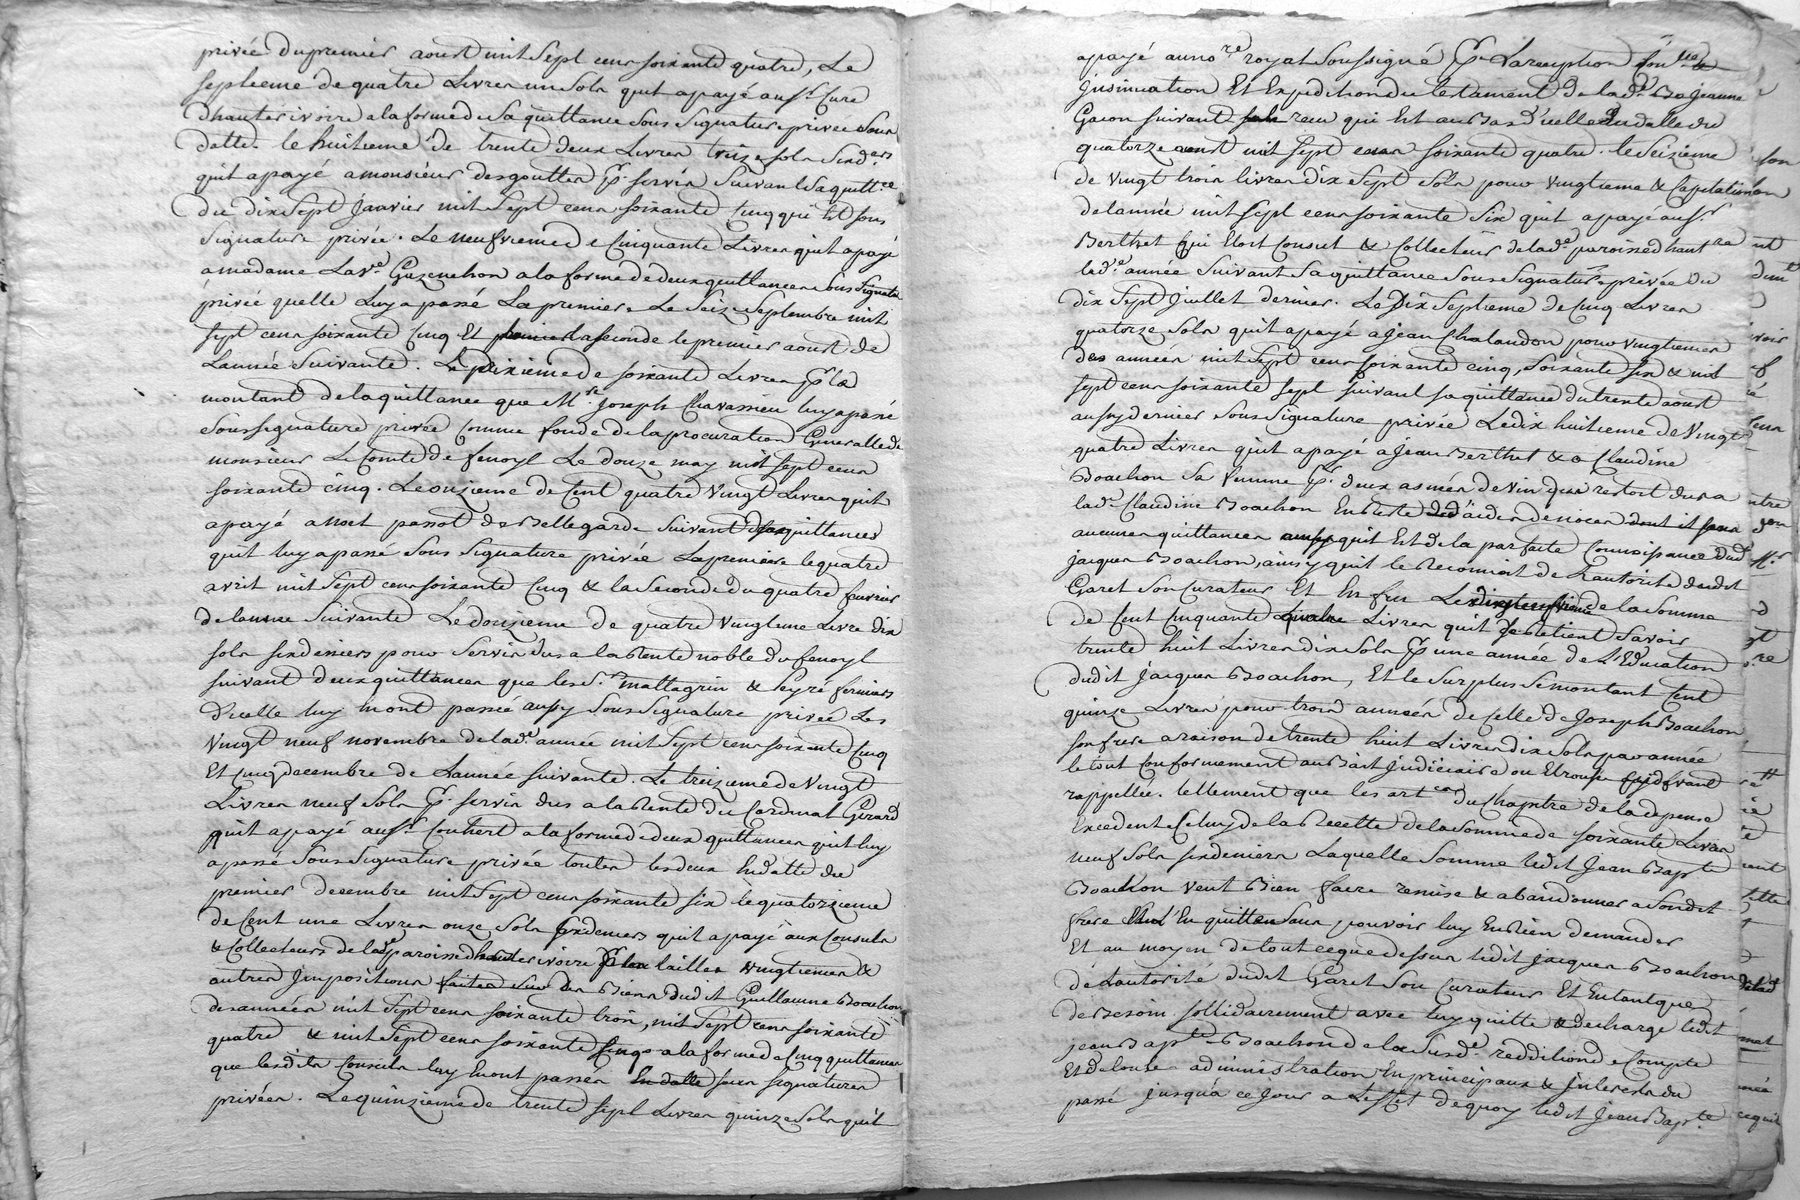 privée du premier aoust mil sept cens soixante quatre, Le
septieme de quatre Livres un sols quil a payé au Sr. Curé
d'hauterivoire a la forme de sa quittance sous signature privée sans
datte. le huitieme de trente deux Livres treize sols six ders
quil a payé a monsieur desgouttes pr. servis suivant sa quittce
du dix sept janvier mil sept cens soixante cinq qui est sous
signature privée. Le neufvieme de Cinquante Livres quil a payé
a madame La ve. Gazenchon a la forme de deux quittances sous signature
privée quelle luy a passé La premiere Le seize septembre mil
sept cens soixante cinq Et la seconde le premier aoust de
L'année suivante. Le dixieme de soixante Livres pr le
montant de la quittance que Mre. Joseph Chavassieu luy a passé
sous signature privée comme fondé de la procuration Generalle de
monsieur Le Comte de fenoyl Le douze may mil sept cens
soixante cinq. Le onzieme de Cent quatre vingt Livres quil
a payé a noel passot de Bellegarde suivant deux quittances
quil luy a passé sous signature privée La premiere le quatre
avril mil sept cens soixante Cinq & la seconde du quatre fevrier
de l'année suivante Le douzieme de quatre vingt une Livre dix
sols six deniers pour servis dus a la Rente noble du fenoyl
suivant deux quittances que les Srs. mattagrin & peyré fermiers
d'icelle luy en ont passée aussy sous signature privée Les
vingt neuf novembre de lade. année mil sept cens soixante Cinq
Et cinq decembre de L'année suivante. Le treizieme de vingt
Livres neuf sols pr. servis dus a la Rente du Cardinal Girard
quil a payé au Sr. Couhert a la forme de deux quittances quil luy
a passé sous signature privée toutes les deux en datte du
premier decembre mil sept cens soixante six le quatorzieme
de Cent une Livres onze sols six deniers quil a payé aux Consuls
& Collecteurs de lade. paroisse d'hauterivoire pr les tailles vingtiemes &
autres Impositions faites sur les Biens dudit Guillaume Boachon
des années mil sept cens soixante trois, mil sept cens soixante
quatre & mil sept cens soixante cinq a la forme de Cinq quittances
que lesdits Consuls luy en ont passés En datte sous signatures
privées. Le quinzieme de trente sept Livres quinze sols quil
apayé au nore royal soussigné pr. La reception
Insinuation Et Expedition du testament de lade. Jeanne
Gacon suivant recu qui est au Bas d'icelle En datte du
quatorze aoust mil sept cens soixante quatre. le seizieme
de vingt trois livres dix sept sols pour vingtieme & Capitation
de l'année mil sept cens soixante six quil a payé au Sr.
Berthet qui Etoit Consul & Collecteur de lade. paroisse d'hautre
lade. année suivant sa quittance sous signature privée du
dix sept Juillet dernier. Le Dix septieme de Cinq Livres
quatorze sols quil a payé a Jean Chalandon pour vingtiemes
des années mil sept cens soixante cinq, soixante six & mil
sept cens soixante sept suivant sa quittance du trente aoust
aussy dernier sous signature privée Le dix huitieme de vingt
quatre Livres quil a payé a Jean Berthet & a Claudine
Boachon sa femme pr. deux asnées de vin restoit du a
lade. Claudine Boachon En Reste de noces dont il
aucunes quittances quil Est de la parfaite Connoissance dud.
jacques Boachon, ainsy quil le Reconnoit de L'autorité dudit
Garet son Curateur Et En fin Le de la somme
de Cent Cinquante Livres quil Retient savoir
trente huit Livres dix sols pr une année de L'Education
dudit jacques Boachon, Et le surplus se montant Cent
quinze Livres pour trois années de Celle de Joseph Boachon
son frere a raison de trente huit Livres dix sols par année
le tout Conformement au Bail Judiciaire
rappellée. tellement que les articles du Chapitre de la depense
Excedent Celluy de la Recette de la somme de soixante Livres
neuf sols six deniers Laquelle somme ledit Jean Bapte
Boachon veut Bien faire remise & abandonner a sondit
frere En quitte sans pouvoir luy En rien demander
Et au moyen de tout ce que dessus ledit jacques Boachon
de L'autorité dudit Garet son Curateur Et En tant que
de Besoin sollidairement avec luy quitte & decharge ledit
jean Bapte Boachon de la susde. reddition de Compte
Et de toute administration En principaux & interests du
passé jusqu'a ce jour a L'effet de quoy ledit Jean Bapte.